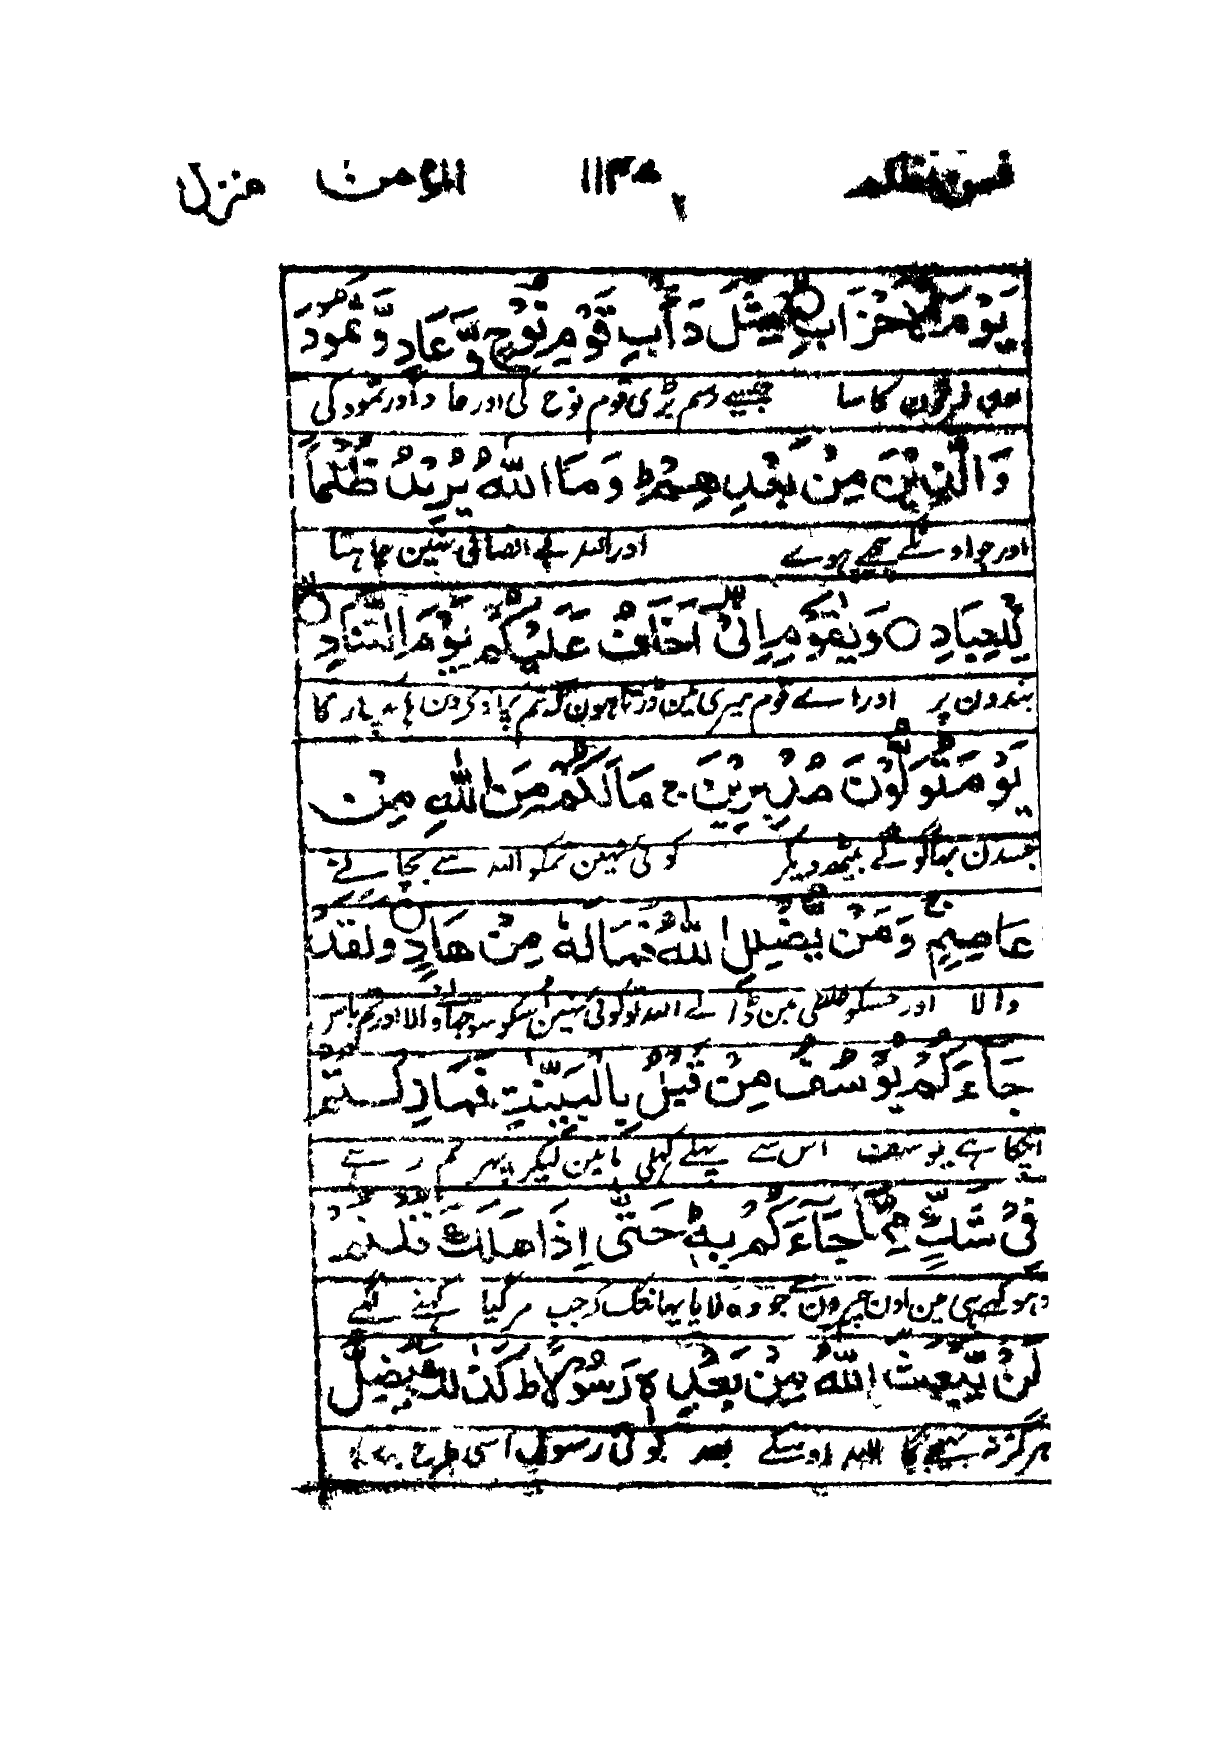 فمن اظلم ١١٣٥ المؤمن منزل
٢
يَوْمِ الْاَحْزَابِ مِثْلَ دَاْبِ قَوْمِ نُوْحٍ وَّعَادٍ وَّثَمُوْدَ
کا سا جیسے رسم پڑی قوم نوح کی اور عاد اور ثمود کی
وَالَّذِیْنَ مِنْۢ بَعْدِهِمْ ؕ وَمَا اللّٰهُ یُرِیْدُ ظُلْمًا
اور جو اونکے پیچھے ہوے اور اللہ بے انصافی نہین چاہتا
لِّلْعِبَادِ ○ وَیٰقَوْمِ اِنِّیْۤ اَخَافُ عَلَیْكُمْ یَوْمَ التَّنَادِ ○
بندون پر اور اے قوم میری مین ڈرتا ہون کہ تم پر آوے دن ہانک پکار کا
یَوْمَ تُوَلُّوْنَ مُدْبِرِیْنَ ۚ مَا لَكُمْ مِّنَ اللّٰهِ مِنْ
جسدن بھاگوگے پیٹھ دیکر کوئی نہین تمکو اللہ سے بچانے
عَاصِمٍ ۚ وَمَنْ یُّضْلِلِ اللّٰهُ فَمَا لَهٗ مِنْ هَادٍ ○ وَلَقَدْ
والا اور جسکو غلطی مین ڈالے اللہ تو کوئی نہین اسکو سوجھانے والا اور تم پاس
جَآءَكُمْ یُوْسُفُ مِنْ قَبْلُ بِالْبَیِّنٰتِ فَمَا زِلْتُمْ
آچکا ہے یوسف اس سے پہلے کھلی باتین لیکر پھر تم رہے
فِیْ شَكٍّ مِّمَّا جَآءَكُمْ بِهٖ ؕ حَتّٰۤی اِذَا هَلَكَ قُلْتُمْ
دھوکھے ہی مین اون چیزون سے جو وہ لایا یہانتک کہ جب مر گیا کہنے لگے
لَنْ یَّبْعَثَ اللّٰهُ مِنْۢ بَعْدِهٖ رَسُوْلًا ؕ كَذٰلِكَ یُضِلُّ
ہرگز نہ بھیجے گا اللہ اوسکے بعد کوئی رسول اسی طرح